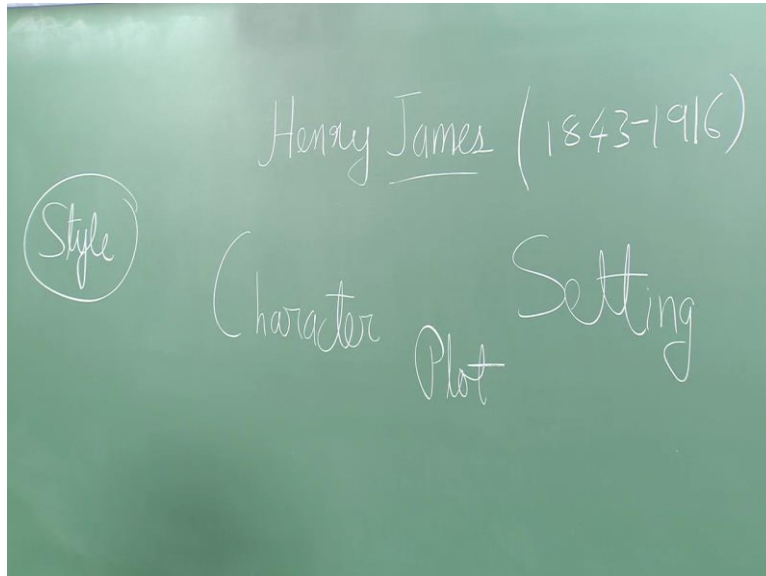 Henry James (1843-1916)
Style
Character
Setting
Plot